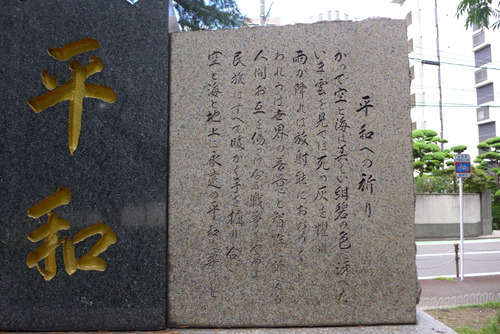 平和
平和への祈り
かつて空と海は美しい紺碧の色に深
いま雲を見ては死の灰を懼れ
雨が降れば放射能におののく
われらは世界の善意と
人間お互の傷つけ合う戦争をやめ
民族はすべて暖かく手を握り合
空と海と地上に永遠の平和